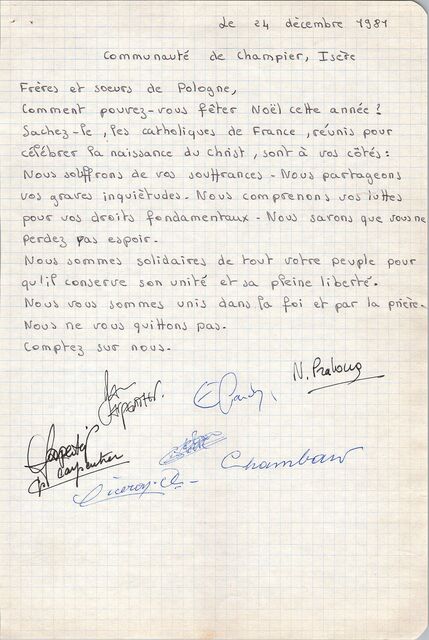 Le 24 décembre 1981
Communauté de Champier, Isère
Frères et soeurs de Pologne,
Comment pouvez-vous fêter Noël cette année ?
Sachez-le, les catholiques de France, réunis pour
célébrer la naissance du Christ, sont à vos côtés :
Nous souffrons de vos souffrances - Nous partageons
vos graves inquiétudes. Nous comprenons vos luttes
pour vos droits fondamentaux - Nous savons que vous ne
perdez pas espoir.
Nous sommes solidaires de tout votre peuple pour
qu'il conserve son unité et sa pleine liberté.
Nous vous sommes unis dans la foi et par la prière.
Nous ne vous quittons pas.
Comptez sur nous.
N. Pralong
Carpentier